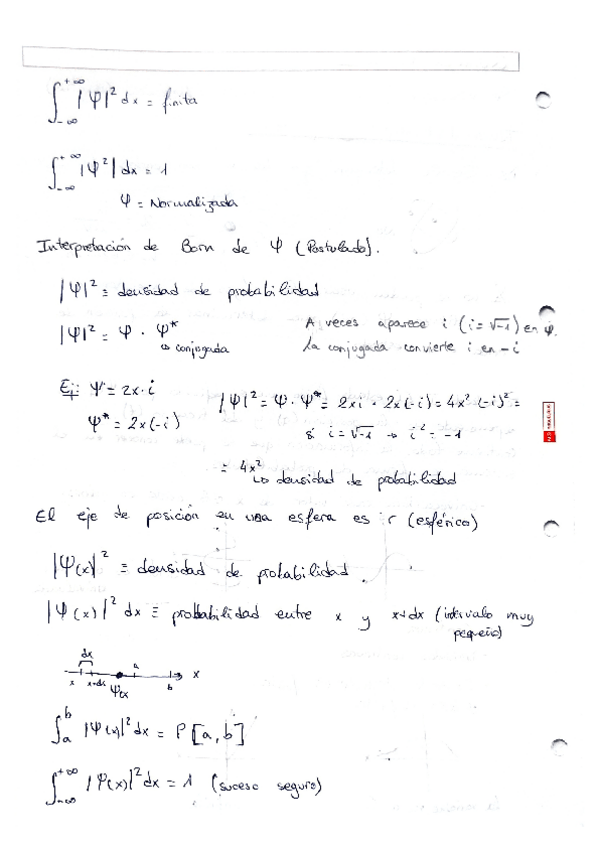 ∫_{-∞}^{+∞} |Ψ|² dx = finita
∫_{-∞}^{+∞} |Ψ²| dx = 1
Ψ = Normalizada
Interpretación de Born de Ψ (Postulado).
|Ψ|² = densidad de probabilidad
|Ψ|² = Ψ · Ψ*
↳ conjugada
A veces aparece i (i = √-1) en Ψ.
La conjugada convierte i en -i
Ej: Ψ = 2x·i
Ψ* = 2x(-i)
|Ψ|² = Ψ·Ψ* = 2xi · 2x(-i) = 4x² (-i)² =
si i = √-1 → i² = -1
= 4x²
↳ densidad de probabilidad
El eje de posición en una esfera es r (esférico)
|Ψ(x)|² ≡ densidad de probabilidad
|Ψ(x)|² dx ≡ probabilidad entre x y x+dx (intervalo muy
pequeño)
dx
x x+dx a b x
Ψ(x
∫_a^b |Ψ(x)|² dx = P[a,b]
∫_{-∞}^{+∞} |Ψ(x)|² dx = 1 (suceso seguro)